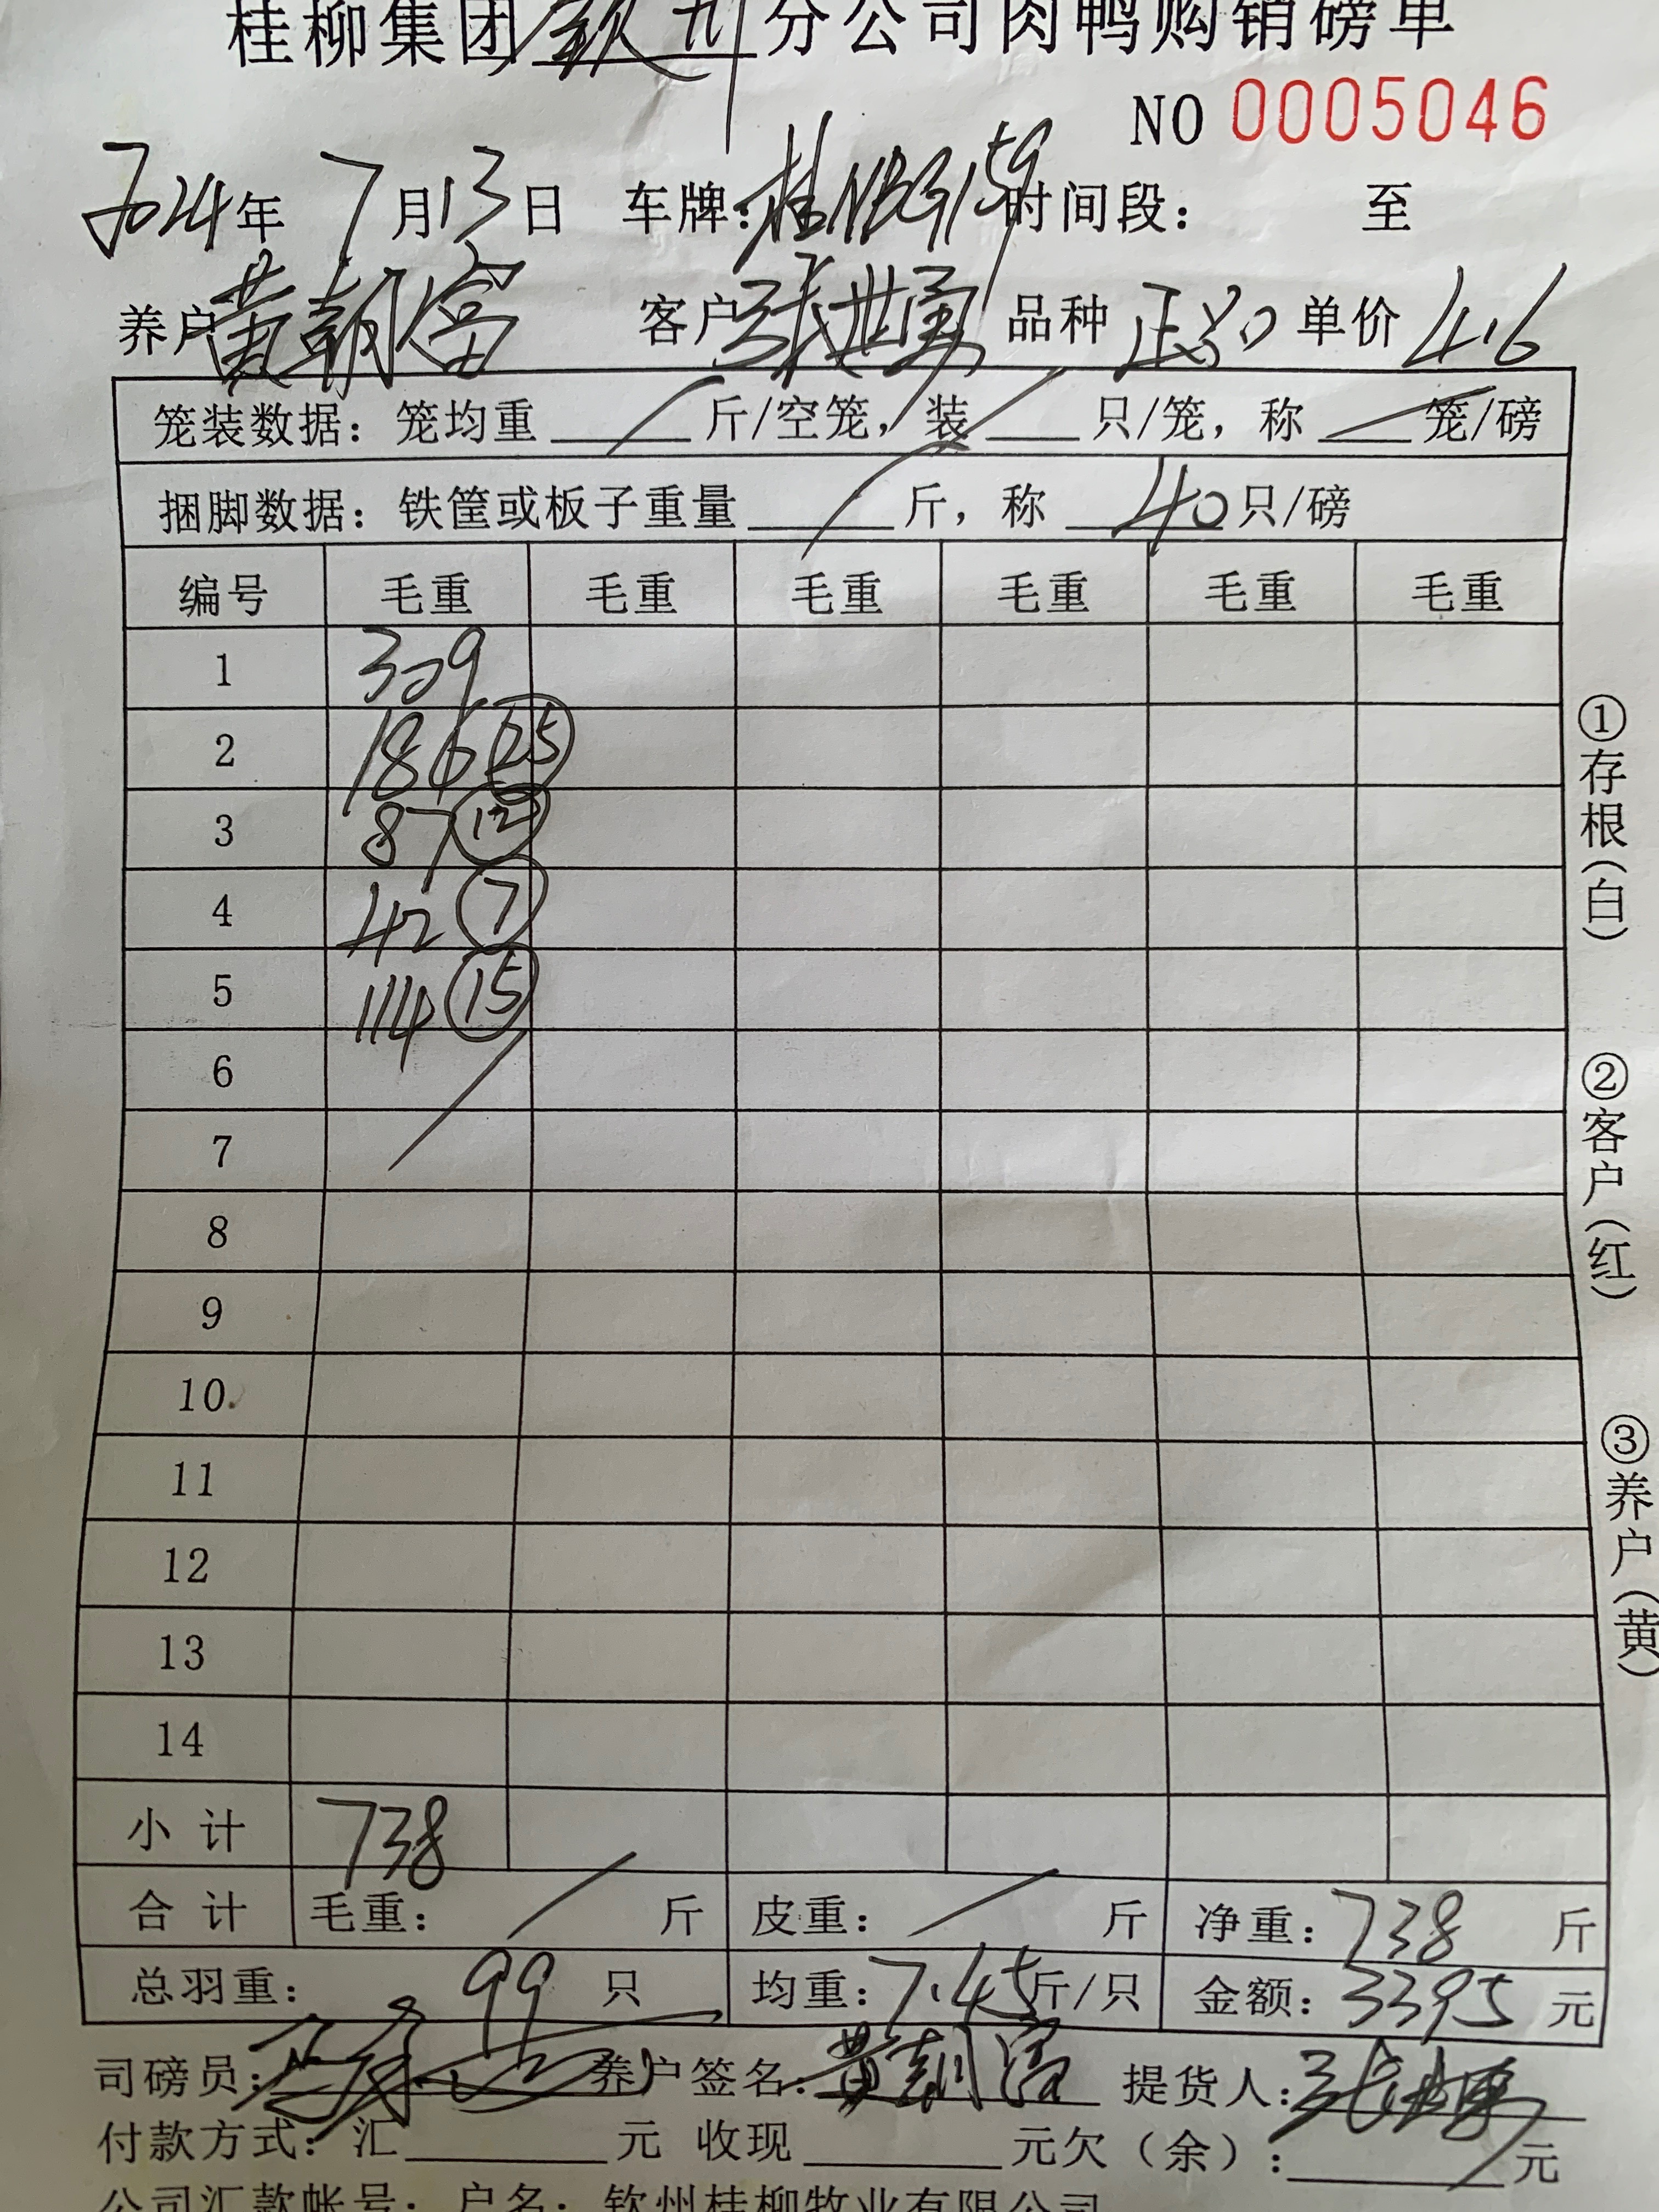 桂柳集团钦州分公司肉鸭购销磅单
NO 0005046
2024年 7月13日 车牌:桂NBG159 时间段: 至
养户黄朝富 客户张世勇 品种 正 单价 4.6
笼装数据:笼均重 / 斤/空笼,装 / 只/笼,称 / 笼/磅
捆脚数据:铁筐或板子重量 / 斤,称 40只/磅
编号 毛重 毛重 毛重 毛重 毛重 毛重
1 309
2 186 25
3 87 12
4 42 7
5 114 15
6
7
8
9
10
11
12
13
14
小计 738
合计 毛重: / 斤 皮重: / 斤 净重:738 斤
总羽重: 99 只 均重:7.45斤/只 金额:3395 元
司磅员: 养户签名:黄朝富 提货人:张世勇
付款方式:汇 元 收现 元欠(余): 元
公司汇款帐号:户名:钦州桂柳牧业有限公司
①存根(白)
②客户(红)
③养户(黄)